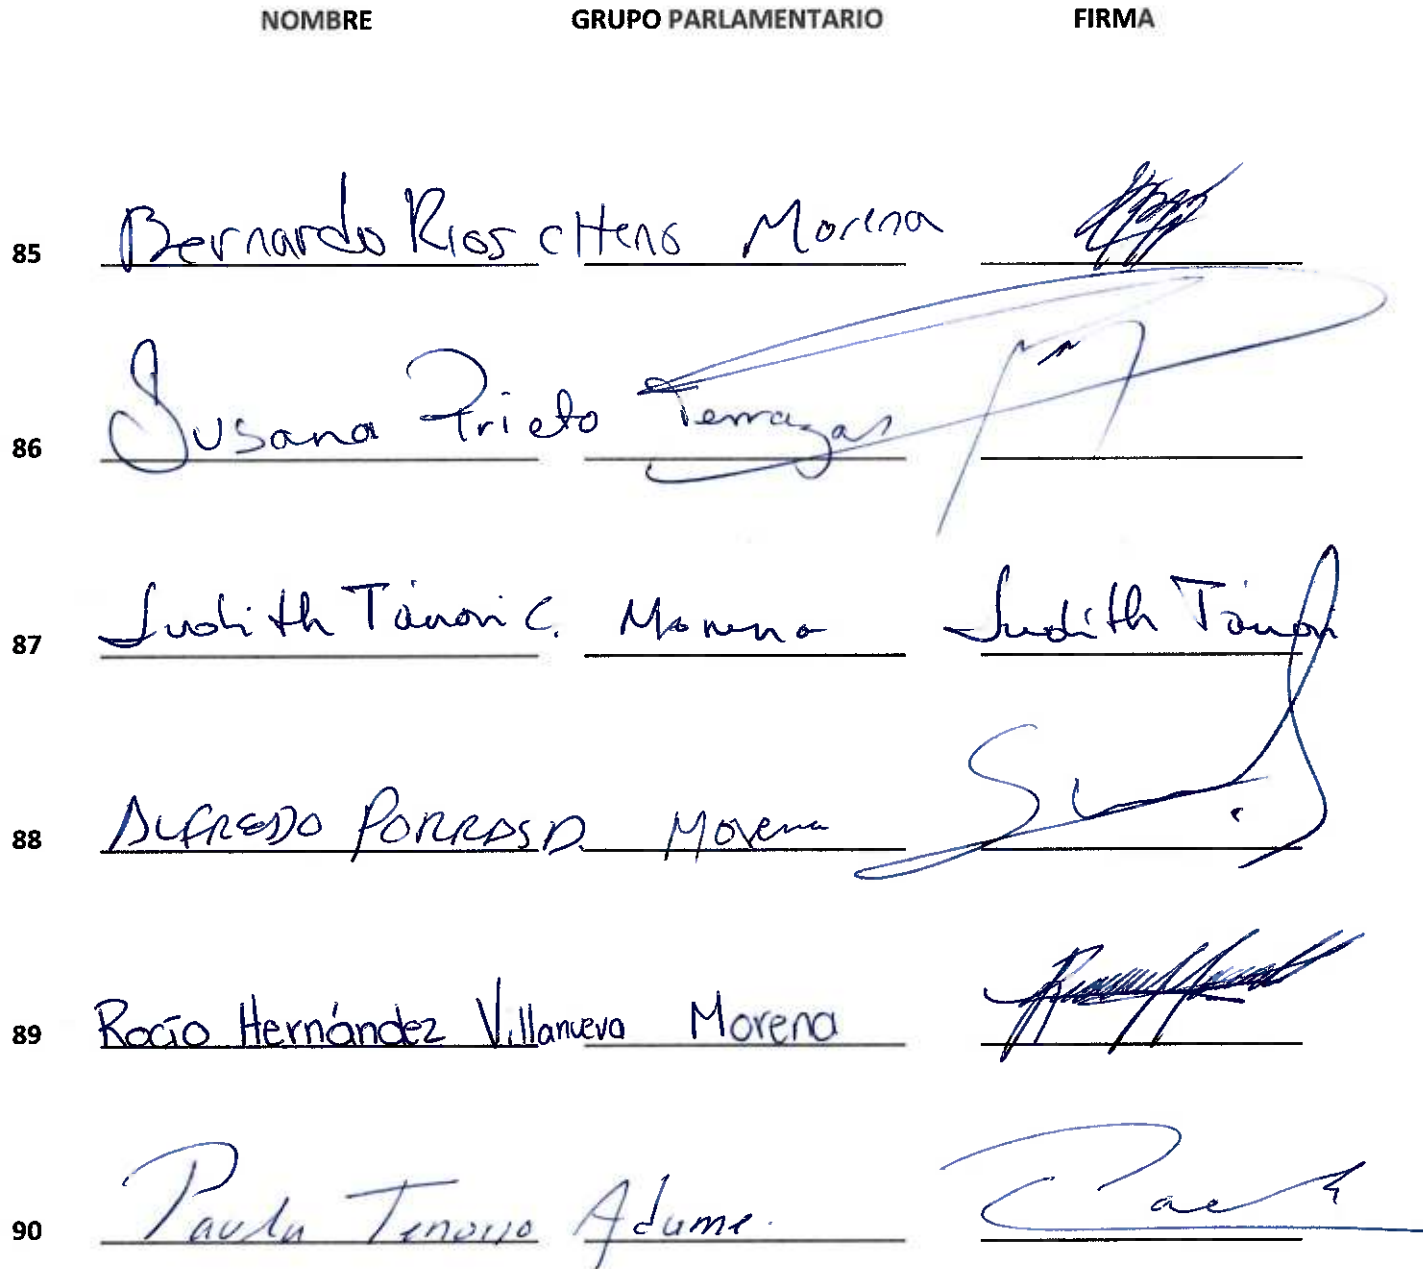 NOMBRE GRUPO PARLAMENTARIO FIRMA
85 Bernardo Rios cHeno Morena
86 Susana Prieto Terrazas
87 Judith Tánori C. Morena Judith Tánori
88 ALFREDO PORRAS D. Morena
89 Rocío Hernández Villanueva Morena
90 Paula Tenorio Adame.